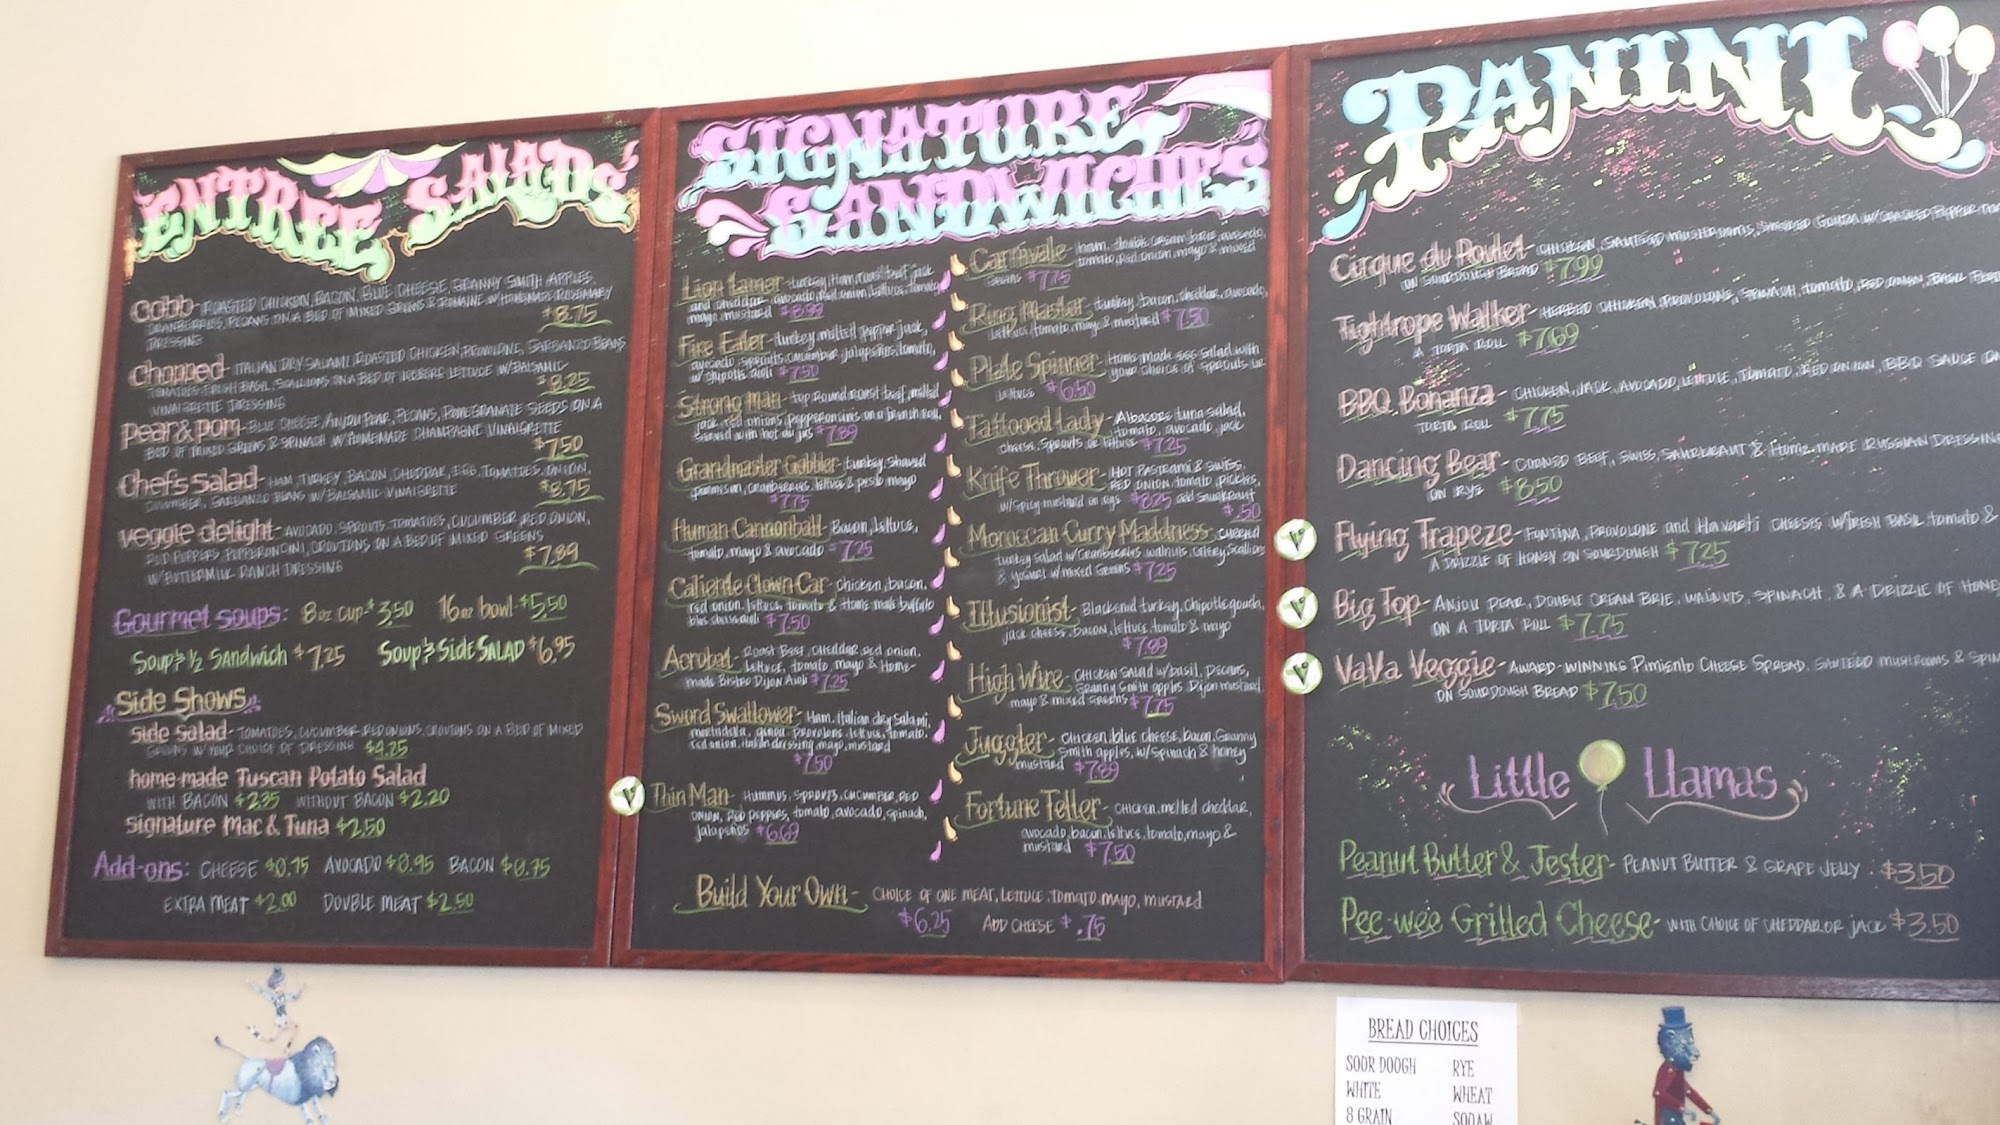 ENTREE SALADS
Cobb - ROASTED CHICKEN, BACON, BLUE CHEESE, GRANNY SMITH APPLES,
CRANBERRIES, PECANS ON A BED OF MIXED GREENS & ROMAINE W/HOMEMADE ROSEMARY
DRESSING $8.75
Chopped - ITALIAN DRY SALAMI, ROASTED CHICKEN, PROVOLONE, GARBANZO BEANS
TOMATOES, FRESH BASIL, SCALLIONS ON A BED OF ICEBERG LETTUCE W/BALSAMIC
VINAIGRETTE DRESSING $8.25
pear & pom - BLUE CHEESE, ANJOU PEAR, PECANS, POMEGRANATE SEEDS ON A
BED OF MIXED GREENS & SPINACH W/HOMEMADE CHAMPAGNE VINAIGRETTE
$7.50
chef's salad - HAM, TURKEY, BACON, CHEDDAR, EGG, TOMATOES, ONION,
CUCUMBER, GARBANZO BEANS W/BALSAMIC VINAIGRETTE $8.75
veggie delight - AVOCADO, SPROUTS, TOMATOES, CUCUMBER, RED ONION,
RED PEPPERS, PEPPERONCINI, CROUTONS ON A BED OF MIXED GREENS
W/BUTTERMILK RANCH DRESSING $7.89
Gourmet soups: 8oz cup $3.50 16oz bowl $5.50
Soup & 1/2 SANDWICH $7.25 Soup & Side SALAD $6.95
Side Shows
side salad - TOMATOES, CUCUMBER, RED ONIONS, CROUTONS ON A BED OF MIXED
GREENS W/ YOUR CHOICE OF DRESSING $4.25
home-made Tuscan Potato Salad
WITH BACON $2.35 WITHOUT BACON $2.20
signature Mac & Tuna $2.50
Add-ons: CHEESE $0.75 AVOCADO $0.95 BACON $0.75
EXTRA MEAT $2.00 DOUBLE MEAT $2.50
SIGNATURE
SANDWICHES
Lion tamer - turkey, Ham, roast beef, jack
and cheddar, avocado, red onion, lettuce, tomato,
mayo, mustard $8.99
Fire Eater - turkey, melted pepper jack,
avocado, sprouts, cucumber, jalapeños, tomato,
w/chipotle aioli $7.50
Strong Man - top round roast beef, melted
jack, red onions, pepperoncinis on a french roll,
served with hot au jus $7.89
Grandmaster Gobbler - turkey, shaved
parmesan, cranberries, lettuce & pesto mayo
$7.75
Human Cannonball - Bacon, lettuce,
tomato, mayo & avocado $7.25
Caliente Clown Car - chicken, bacon,
red onion, lettuce, tomato & Home made buffalo
blue cheese aioli $7.50
Acrobat - Roast Beef, cheddar, red onion,
lettuce, tomato, mayo & Home-
made Bistro Dijon Aioli $7.25
Sword Swallower - Ham, Italian dry salami,
mortadella, provolone, lettuce, tomato,
red onion, italian dressing, mayo, mustard
$7.50
V Thin Man - Hummus, Sprouts, cucumber, RED
ONION, Red peppers, tomato, avocado, spinach,
jalapeños $6.69
Carnivale - ham, double cream brie, avocado,
tomato, red onion, mayo & mixed
greens $7.75
Ring Master - turkey, bacon, cheddar, avocado,
lettuce, tomato, mayo & mustard $7.50
Plate Spinner - Home made egg salad with
your choice of sprouts or
lettuce $6.50
Tattooed Lady - Albacore tuna salad,
tomato, avocado, jack
cheese, Sprouts or lettuce $7.25
Knife Thrower - HOT Pastrami & SWISS,
RED ONION, tomato, pickles,
w/Spicy mustard on rye $8.25 add saurkraut
$.50
Moroccan Curry Maddness - curried
turkey salad w/Cranberries, walnuts, Celery, Scallions
& yogurt w/mixed Greens $7.25
Illusionist - Blackened turkey, Chipotle gouda,
jack cheese, bacon, lettuce, tomato & mayo
$7.89
High Wire - CHICKEN SALAD w/basil, pecans,
Granny Smith apples, Dijon mustard,
mayo & mixed greens $7.75
Juggler - Chicken, blue cheese, bacon, Granny
Smith apples, w/Spinach & honey
mustard $7.89
Fortune Teller - CHICKEN, melted cheddar,
avocado, bacon, lettuce, tomato, mayo &
mustard $7.50
Build Your Own - CHOICE OF ONE MEAT, LETTUCE, TOMATO, MAYO, MUSTARD
$6.25 ADD CHEESE $.75
PANINI
Cirque du Poulet - CHICKEN, SAUTEED MUSHROOMS, SMOKED GOUDA W/CRACKED PEPPER
ON SOURDOUGH BREAD $7.99
Tightrope Walker - HERBED CHICKEN, PROVOLONE, SPINACH, tomato, RED ONION, BASIL
A TORTA ROLL $7.69
BBQ Bonanza - CHICKEN, JACK, AVOCADO, LETTUCE, TOMATO, RED ONION, BBQ SAUCE
TORTA ROLL $7.75
Dancing Bear - CORNED BEEF, SWISS, SAURKRAUT & Home-MADE RUSSIAN DRESSING
ON RYE $8.50
V Flying Trapeze - FONTINA, PROVOLONE and Havarti CHEESES W/FRESH BASIL tomato &
A DRIZZLE OF HONEY ON SOURDOUGH $7.25
V Big Top - ANJOU PEAR, DOUBLE CREAM BRIE, WALNUTS, SPINACH, & A DRIZZLE OF HONEY
ON A TORTA ROLL $7.75
V VaVa Veggie - AWARD-WINNING Pimiento CHEESE SPREAD, SAUTEED MUSHROOMS &
ON SOURDOUGH BREAD $7.50
Little Llamas
Peanut Butter & Jester - PEANUT BUTTER & GRAPE JELLY. $3.50
Pee-wee Grilled Cheese - WITH CHOICE OF CHEDDAR OR jack $3.50
BREAD CHOICES
SOUR DOUGH RYE
WHITE WHEAT
8 GRAIN